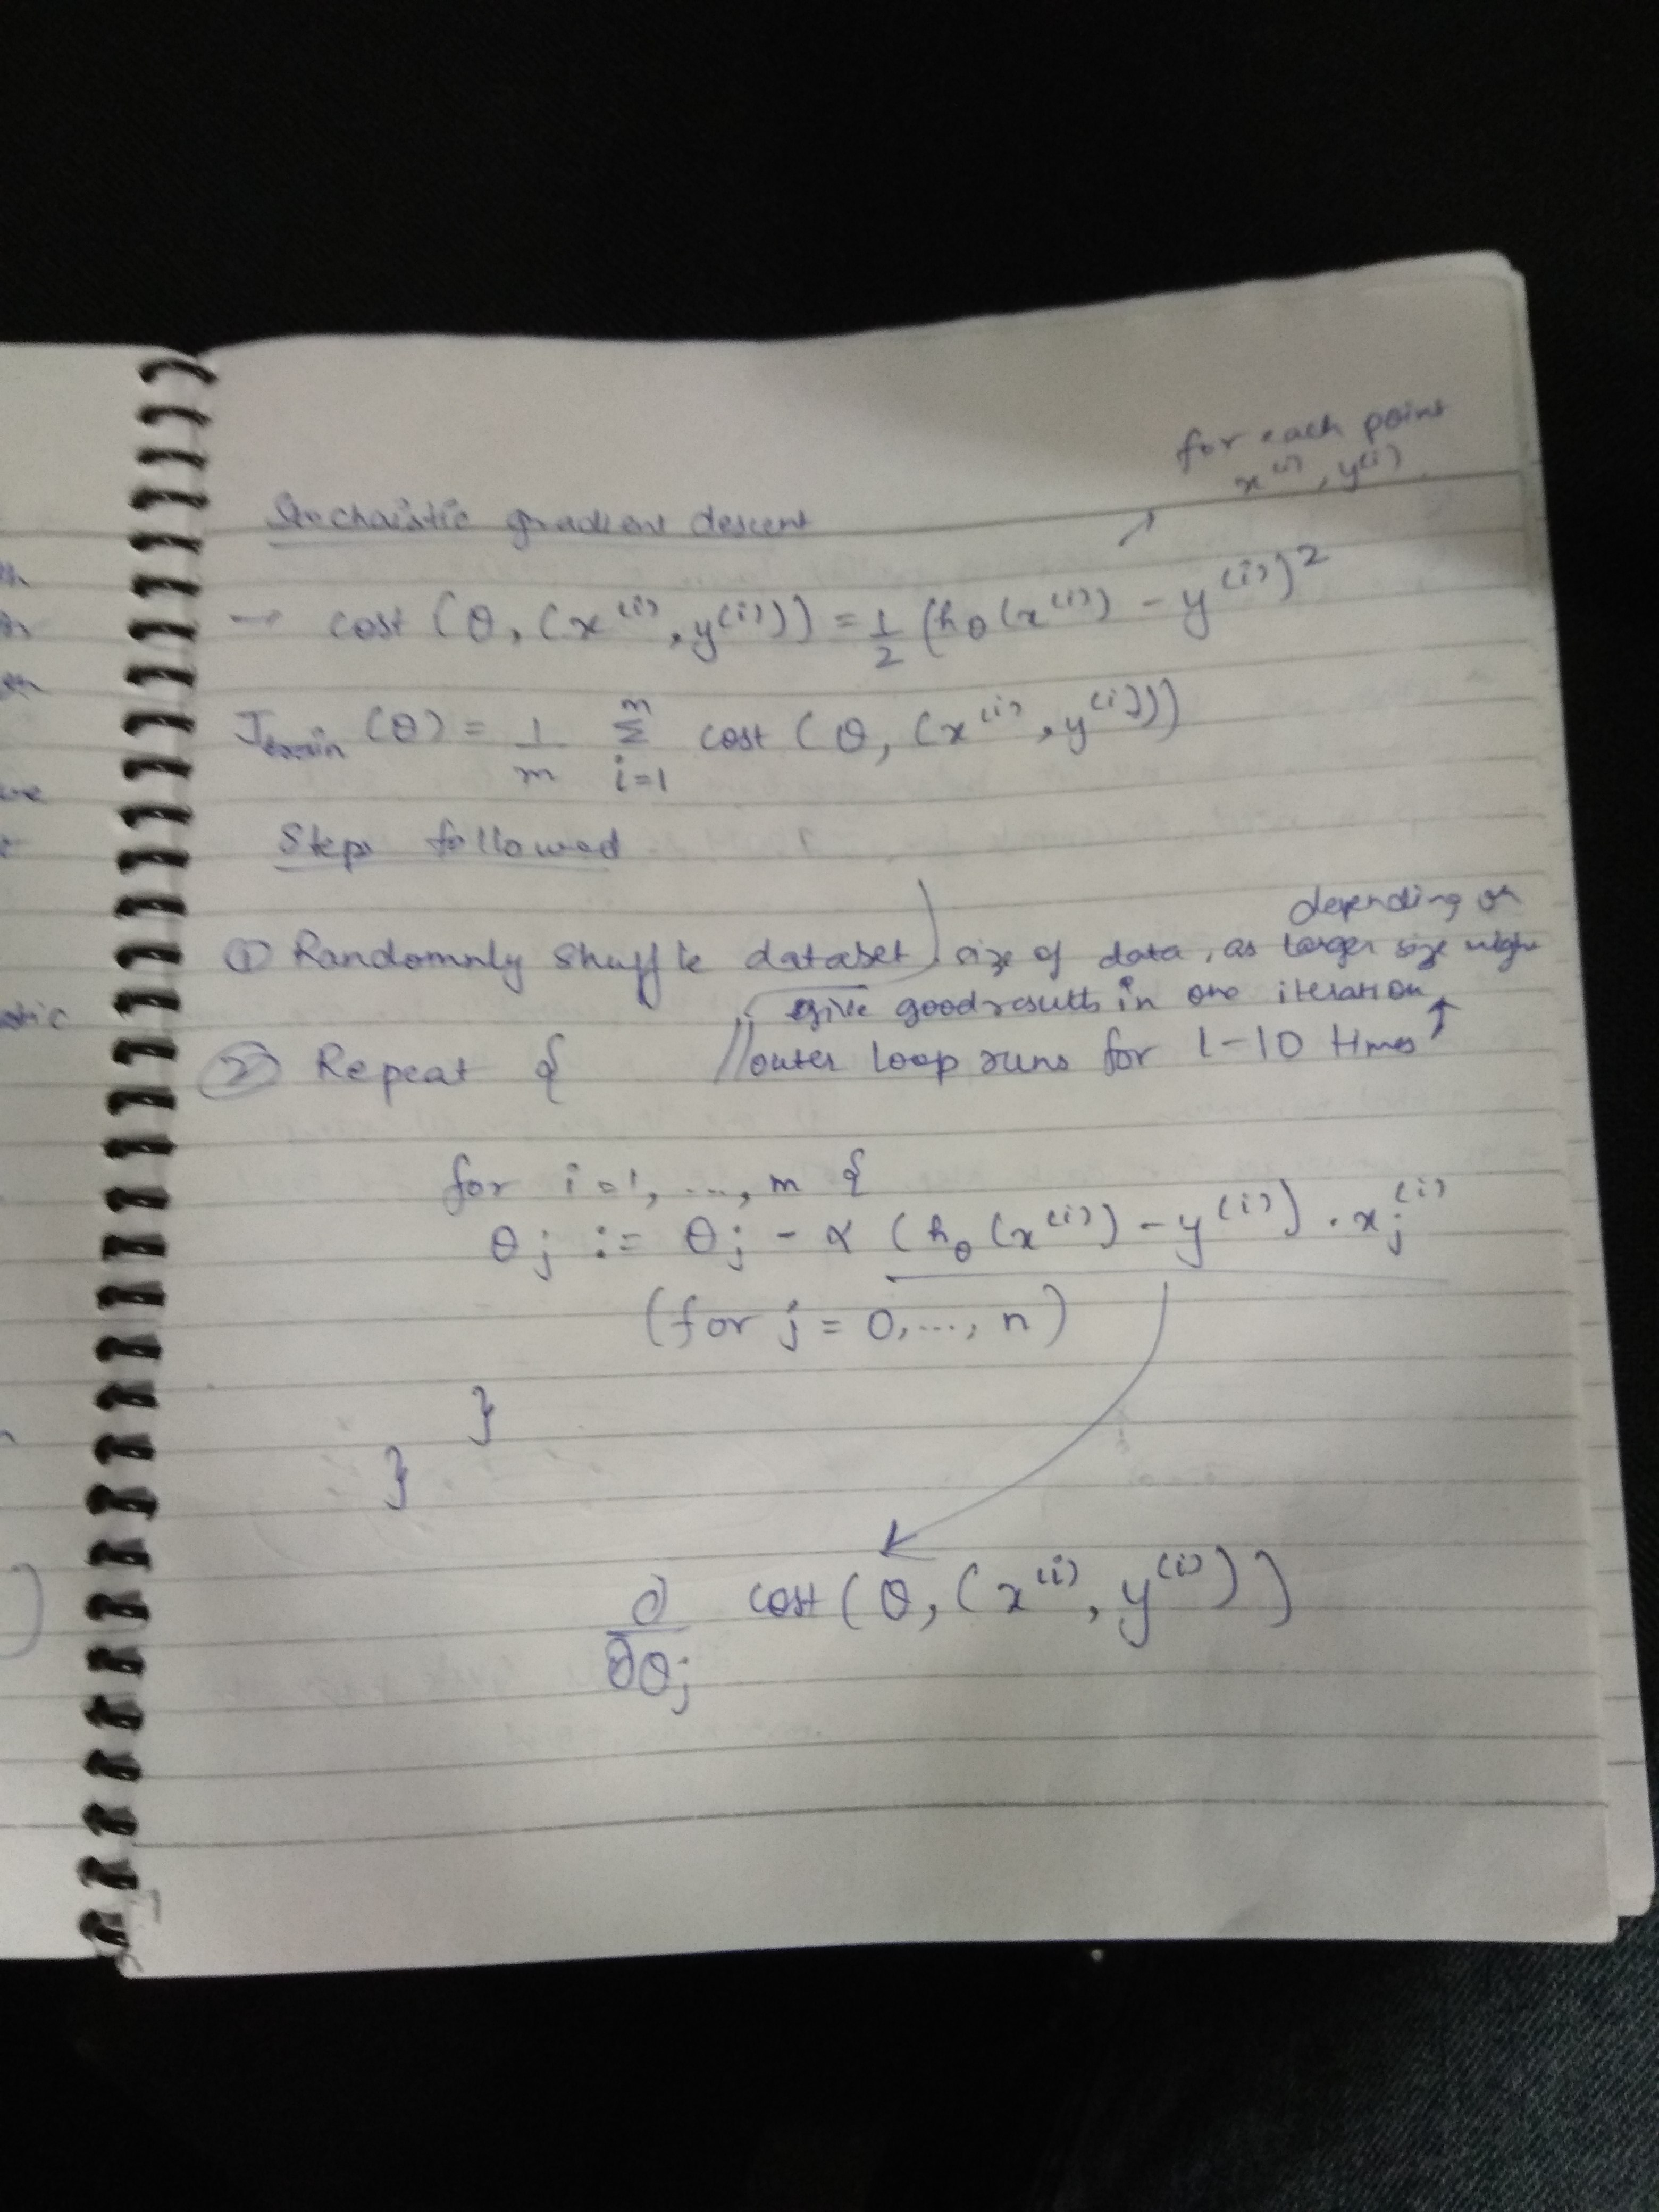 for each point
x⁽ⁱ⁾, y⁽ⁱ⁾
Stochaistic gradient descent
→ cost (θ, (x⁽ⁱ⁾, y⁽ⁱ⁾)) = 1/2 (hθ(x⁽ⁱ⁾) - y⁽ⁱ⁾)²
Jtrain (θ) = 1/m Σ_{i=1}^{m} cost (θ, (x⁽ⁱ⁾, y⁽ⁱ⁾))
Steps followed
① Randomnly shuffle dataset
② Repeat {
//outer loop runs for 1-10 times
depending on
size of data, as larger size might
give good results in one iteration
for i=1, ..., m {
θj := θj - α (hθ(x⁽ⁱ⁾) - y⁽ⁱ⁾) . xj⁽ⁱ⁾
(for j = 0, ..., n)
}
}
∂/∂θj cost (θ, (x⁽ⁱ⁾, y⁽ⁱ⁾))